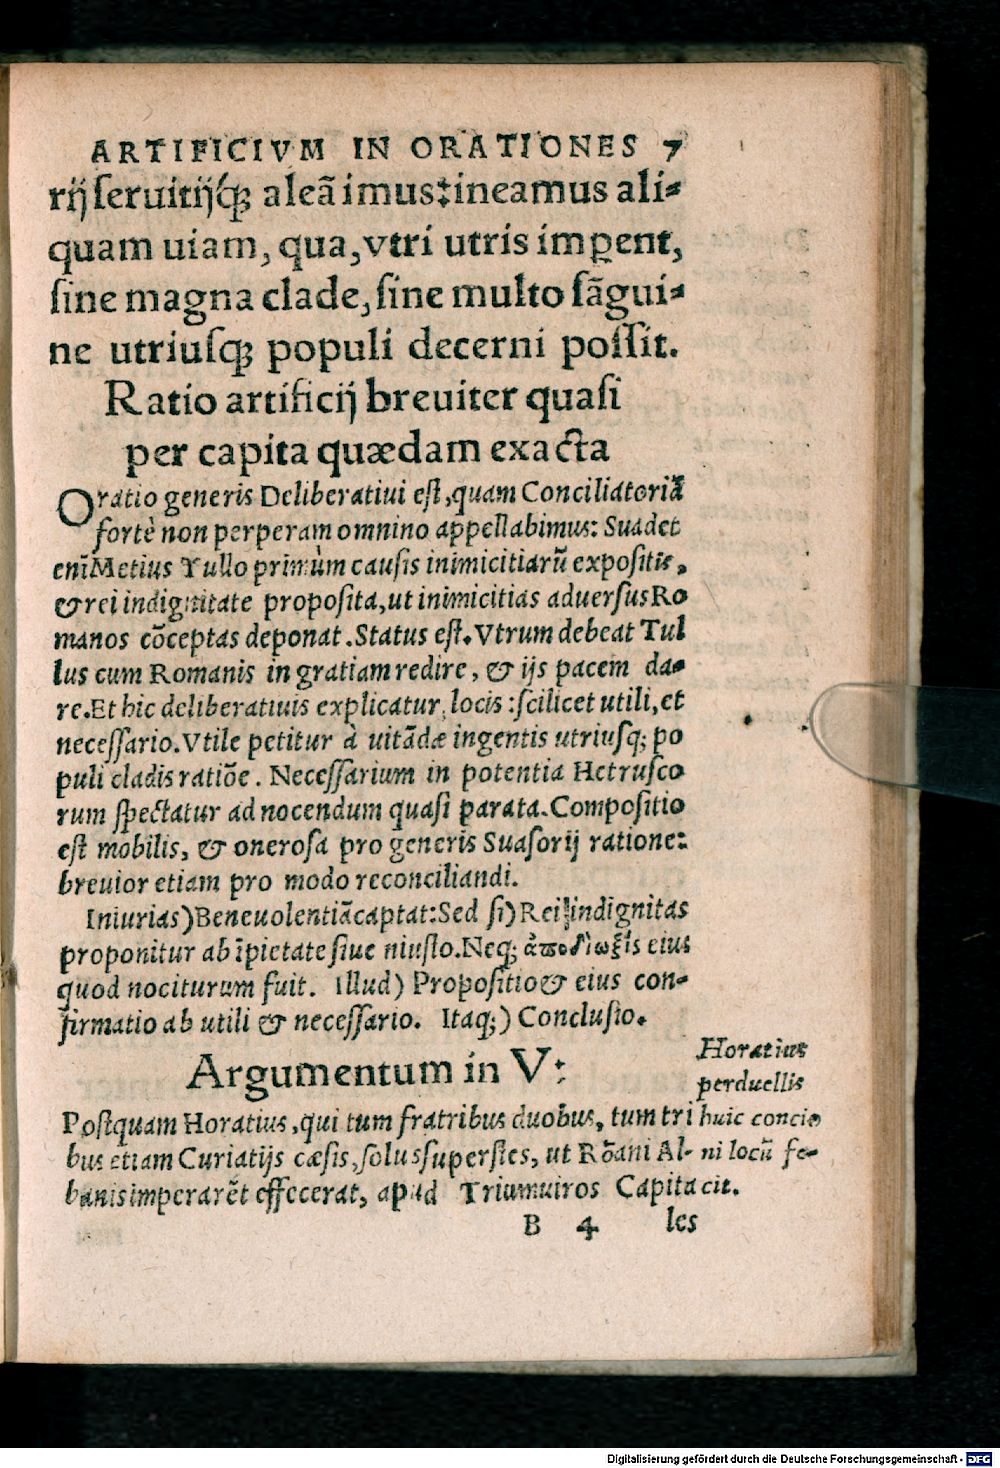 ARTIFICIVM IN ORATIONES 7
rĳ ſeruitĳq́ꝫ aleā imus: ineamus ali⸗
quam uiam, qua, vtri utris imꝑent,
ſine magna clade, ſine multo ſāgui⸗
ne utriuſqꝫ populi decerni poſſit.
Ratio artificĳ breuiter quaſi
per capita quædam exacta
Oratio generis Deliberatiui eſt, quam Conciliatoriā
fortè non perperam omnino appellabimus: Suadet
enī Metius Tullo primùm cauſis inimicitiarū expoſitis,
& rei indignitate propoſita, ut inimicitias aduerſus Ro
manos cōceptas deponat. Status eſt. Vtrum debeat Tul
lus cum Romanis in gratiam redire, & ijs pacem da⸗
re. Et hic deliberatiuis explicatur, locis: ſcilicet utili, et
neceſſario. Vtile petitur à uitādæ ingentis utriuſq; po
puli cladis ratiōe. Neceſſarium in potentia Hetruſco
rum ſpectatur ad nocendum quaſi parata. Compoſitio
eſt mobilis, & oneroſa pro generis Suaſorĳ ratione:
breuior etiam pro modo reconciliandi.
Iniurias) Beneuolentiā captat: Sed ſi) Rei indignitas
proponitur ab īpietate ſiue niuſto. Neq; ἀποδίωξις eius
quod nociturum fuit. Illud) Propoſitio & eius con⸗
firmatio ab utili & neceſſario. Itaq;) Concluſio.
Argumentum in V:
Poſtquam Horatius, qui tum fratribus duobus, tum tri
bus etiam Curiatĳs cæſis, ſolus ſuperſtes, ut Rōani Al-
banis imperarēt effecerat, apud Triumuiros Capita
Horatius
perduellis
huic concio
ni locū fe⸗
cit.
B 4 les
Digitalisierung gefördert durch die Deutsche Forschungsgemeinschaft - DFG